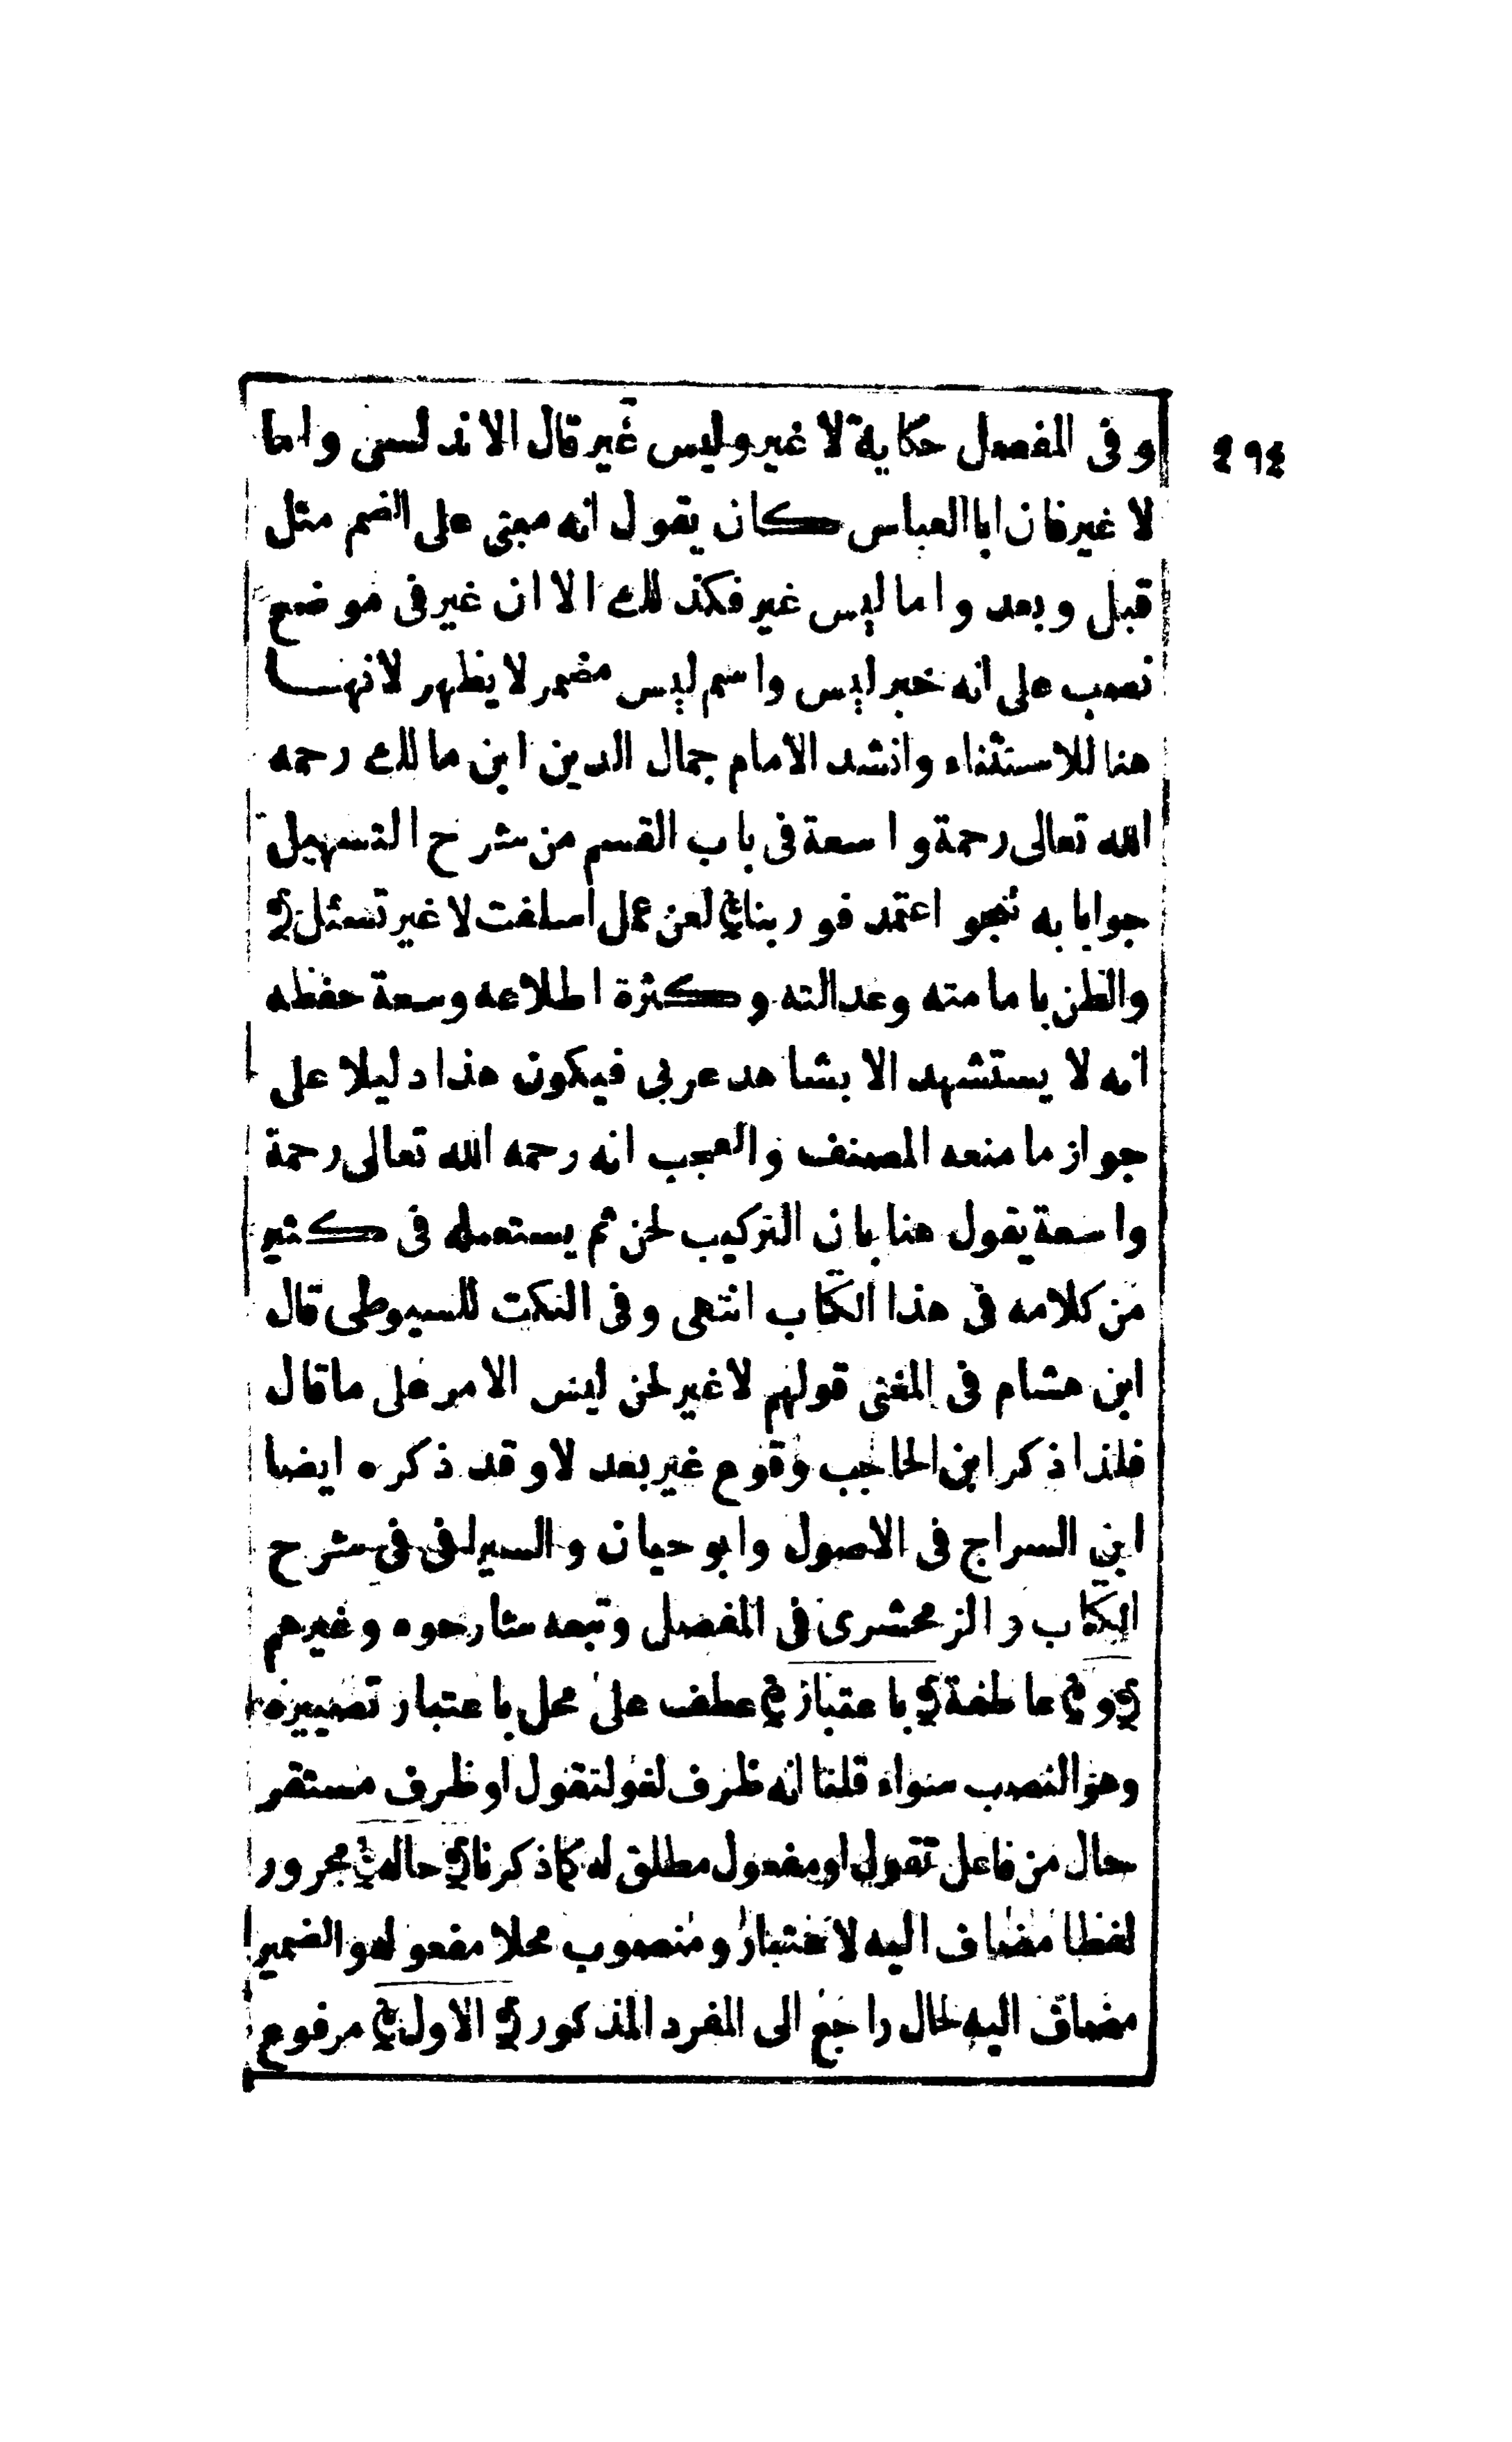 ٤٩٤
وفى المفصل حكاية لا غير وليس غير قال الاندلسى واما
لا غير فان ابا العباس كان يقول انه مبنى على الضم مثل
قبل وبعد واما ليس غير فكذلك الا ان غير فى موضع
نصب على انه خبر ليس واسم ليس مضمر لا يظهر لانها
هنا للاستثناء وانشد الامام جمال الدين ابن مالك رحمه
الله تعالى رحمة واسعة فى باب القسم من شرح التسهيل
جوابا به تنجو اعتمد فو ربنا ﴿ لعن عمل اسلفت لا غير تسئل ﴾
والظن بامامته وعدالته وكثرة اطلاعه وسعة حفظه
انه لا يستشهد الا بشاهد عربى فيكون هذا دليلا على
جواز ما منعه المصنف والعجب انه رحمه الله تعالى رحمة
واسعة يقول هنا بان التركيب لحن ثم يستعمله فى كثير
من كلامه فى هذا الكتاب انتهى وفى النكت للسيوطى قال
ابن هشام فى المغنى قولهم لا غير لحن ليس الامر على ما قال
فلذا ذكر ابن الحاجب وقوع غير بعد لا وقد ذكره ايضا
ابن السراج فى الاصول وابو حيان والسيرافى فى شرح
الكتاب والزمحشرى فى المفصل وتبعه شارحوه وغيرهم
﴾ و ﴿ عاطفة ﴾ باعتبار ﴿ عطف على محل باعتبار تصييره
وهو النصب سواء قلنا انه ظرف لغو لنقول او ظرف مستقر
حال من فاعل تقول او مفعول مطلق له كما ذكرنا ﴾ حاله ﴿ مجرور
لفظا مضاف اليه لاعتبار ومنصوب محلا مفعوله والضمير
مضاف اليه لحال راجع الى المفرد المذكور ﴾ الاول ﴿ مرفوع